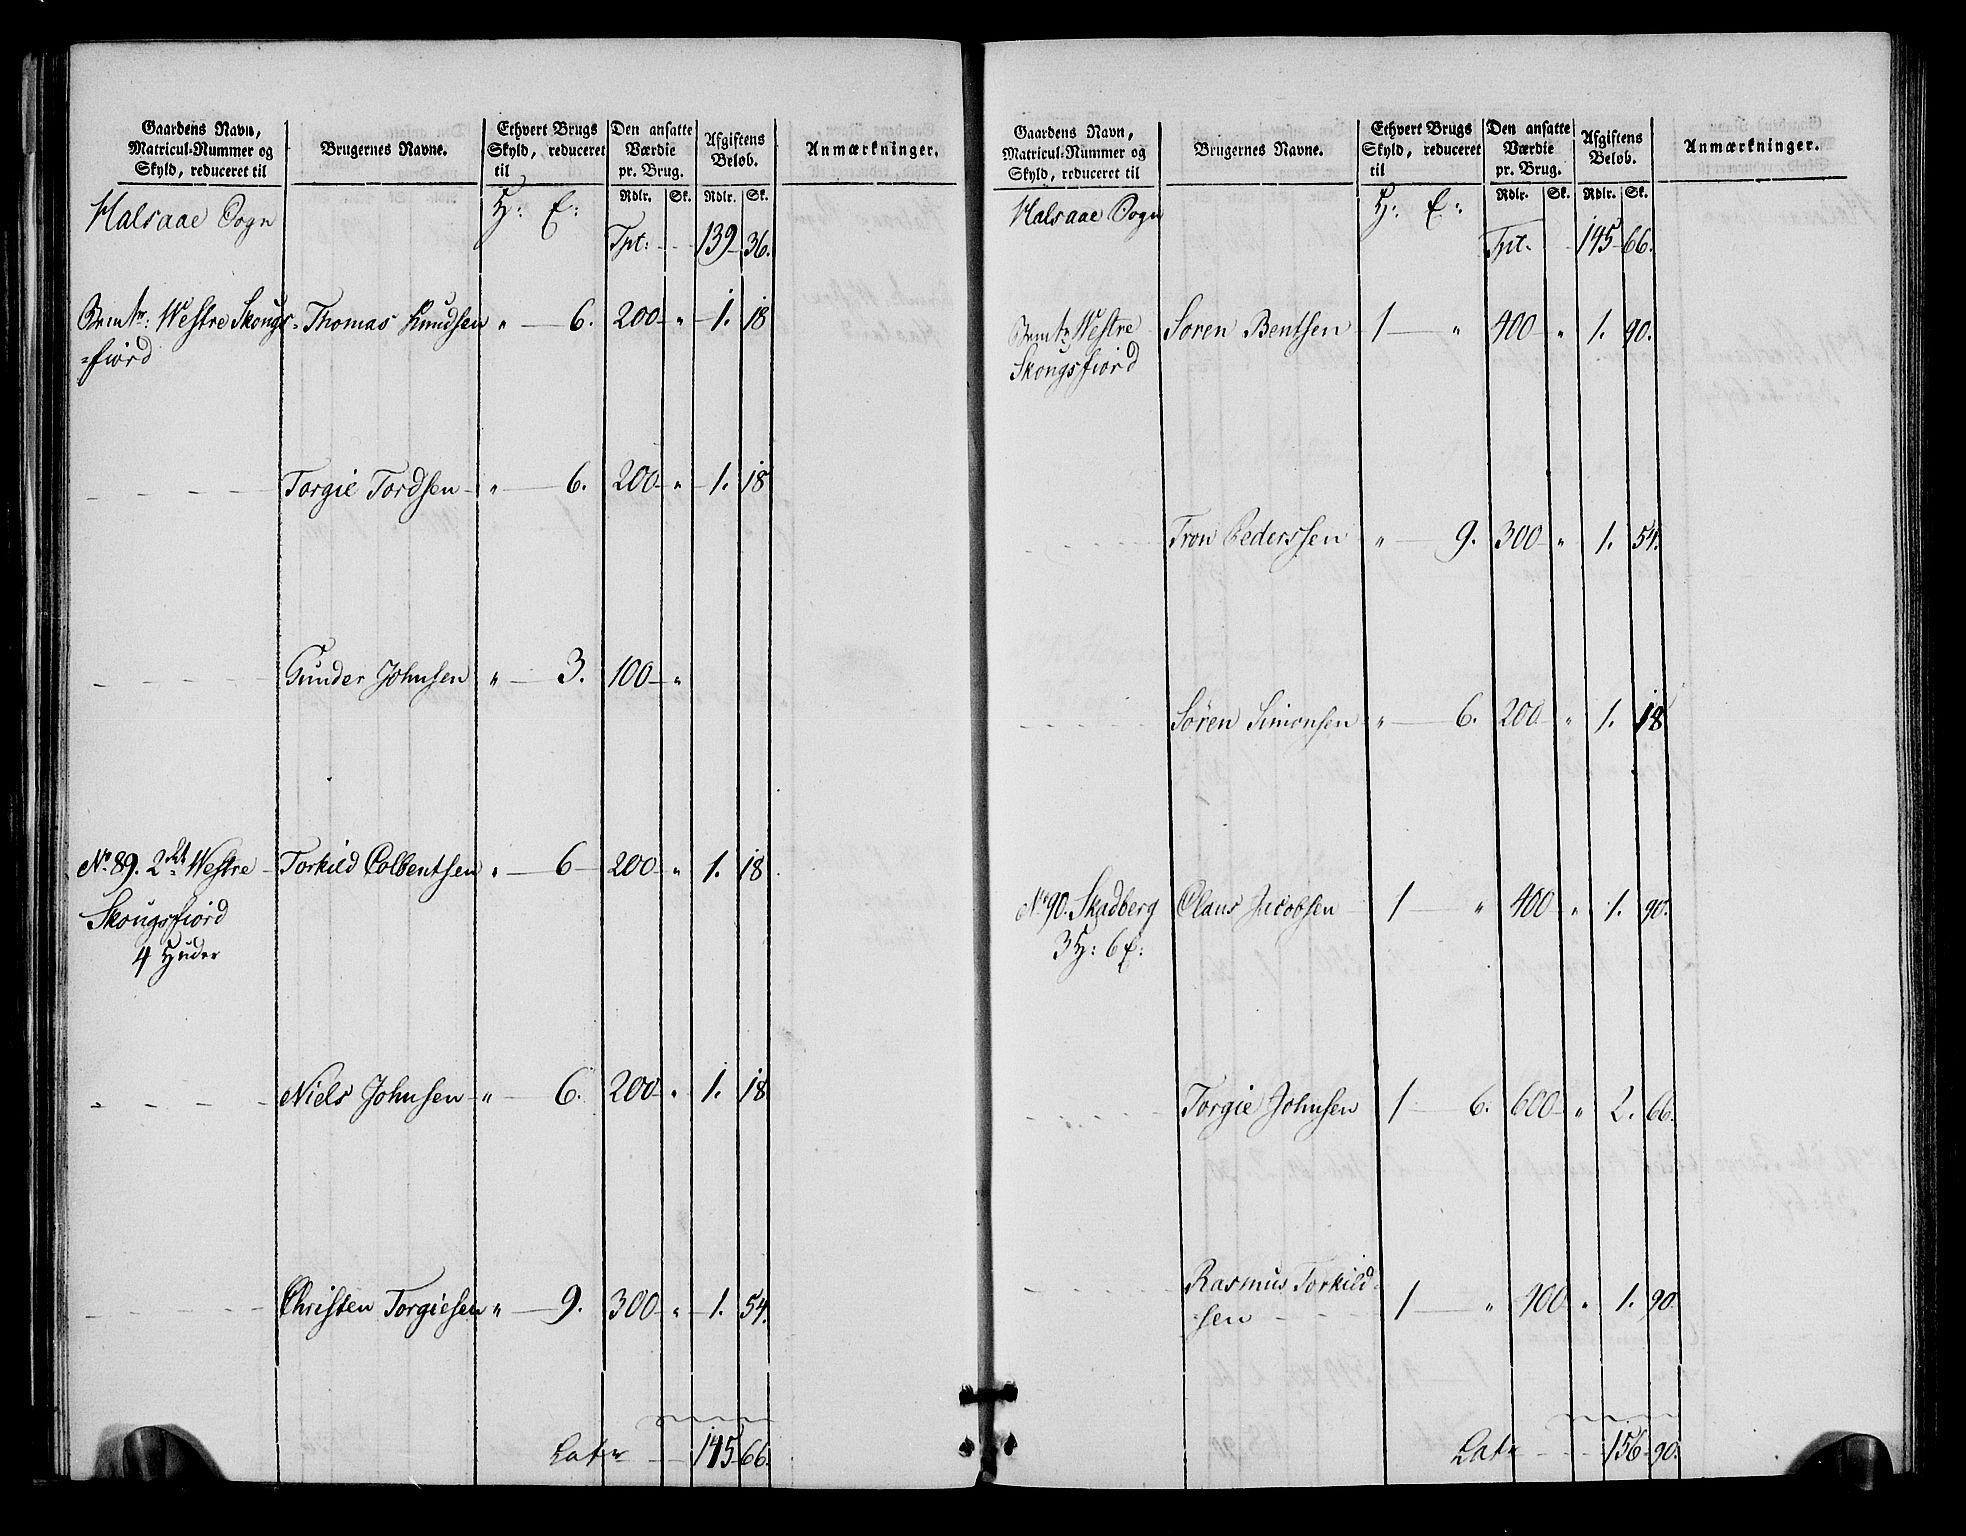 Gaardens Navn, Matricul-Nummer og Skyld, reduceret til | Brugernes Navne. | Ethvert Brugs Skyld, reduceret til | Den ansatte Værdie pr. Brug. | Afgiftens Beløb. | Anmærkninger.
Rdlr. Sk. Rdlr. Sk.
Halsaae Sogn H: E: Tpt: 139 36.
Bemte: Westre Skougs- Thomas Knudsen " 6. 200 " 1. 18
=fiord
Torgie Tordsen " 6. 200 " 1. 18
Gunder Johnsen " 3. 100 "
No. 89. 2det Westre Torkild Colbentsen " 6 200 " 1. 18
Skougsfiord
4 Huder
Niels Johnsen " 6. 200 " 1. 18
Christen Torgiesen " 9. 300 " 1. 54.
Lat 145 66.
Gaardens Navn, Matricul-Nummer og Skyld, reduceret til | Brugernes Navne. | Ethvert Brugs Skyld, reduceret til | Den ansatte Værdie pr. Brug. | Afgiftens Beløb. | Anmærkninger.
Rdlr. Sk. Rdlr. Sk.
Halsaae Sogn H: E: Tpt. 145 66.
Bemte Westre Søren Bentsen 1 " 400 " 1. 90.
Skougsfiord
Tron Pederssen " 9. 300 " 1. 54.
Søren Simonsen " 6. 200 " 1. 18
No 90. Skadberg Claus Jacobsen 1 " 400 " 1. 90.
3 H: 6 E:
Torgie Johnsen 1 6. 600 " 2. 66.
Rasmus Torkild=
=sen 1 " 400 " 1. 90.
Lat 156 90.